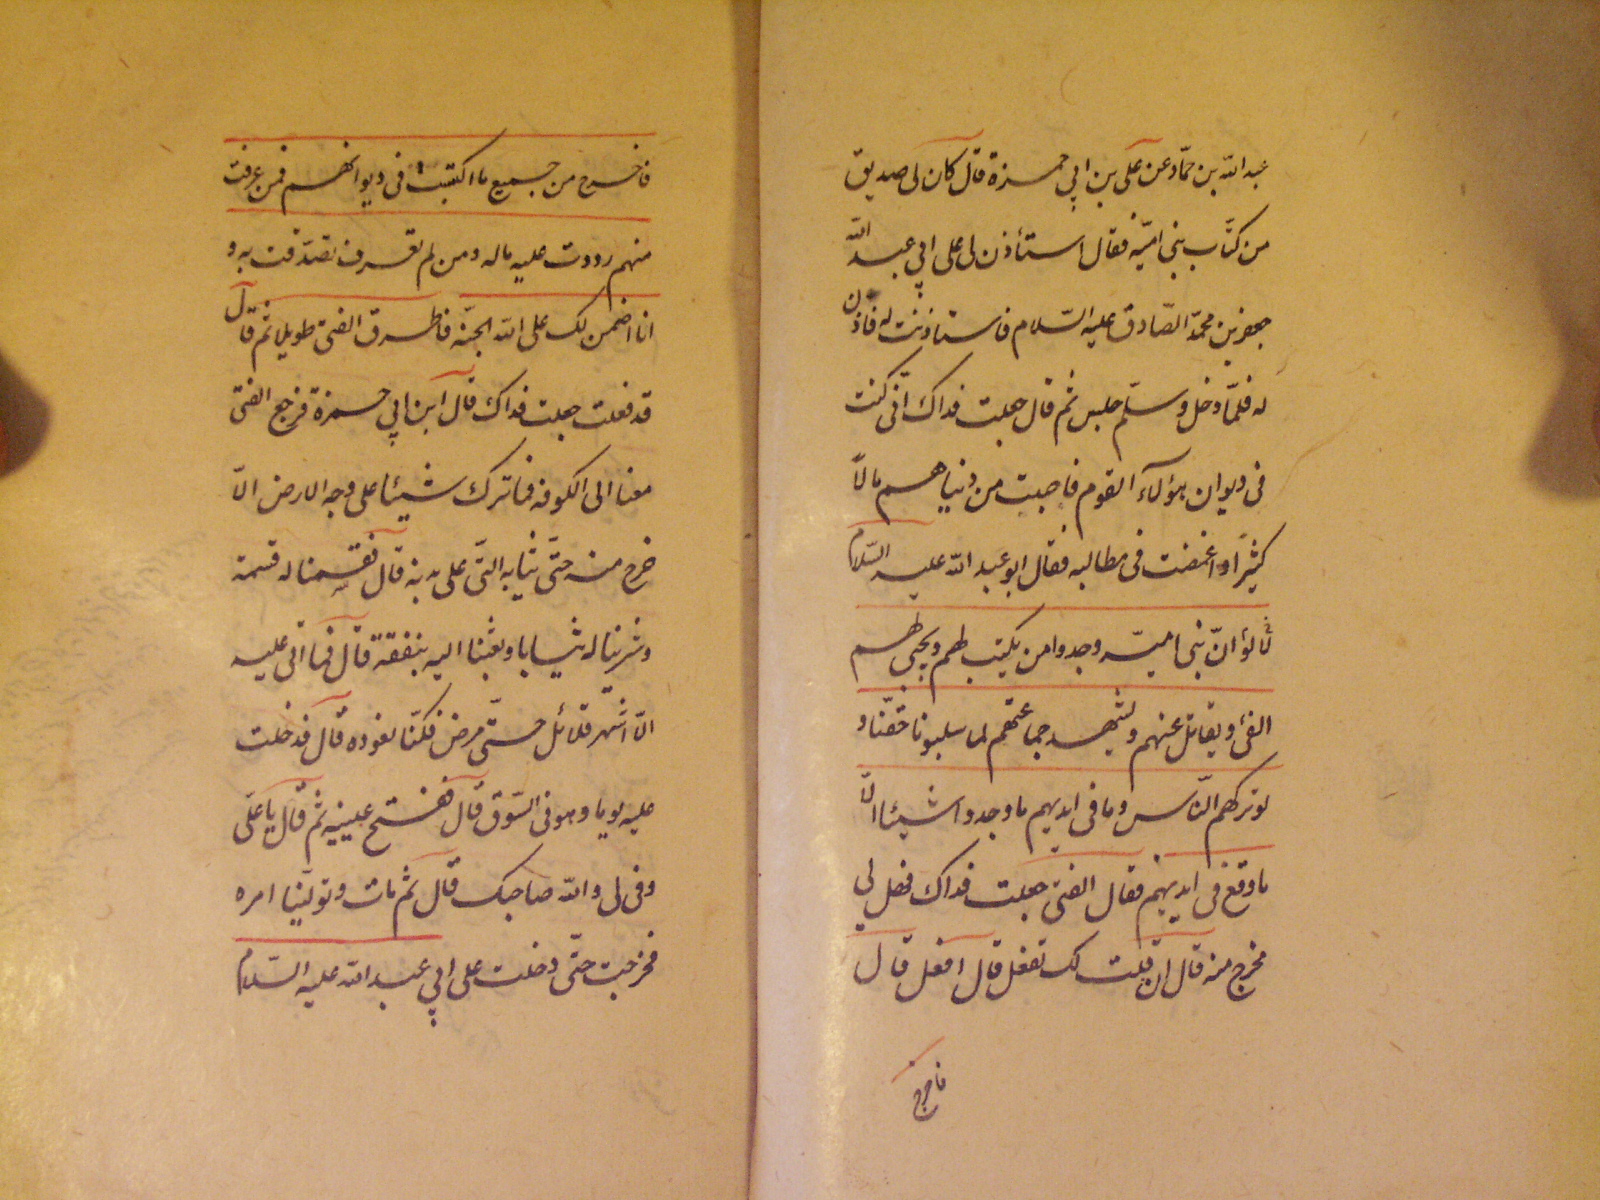 عبد الله بن حمّاد عن على بن ابي حمزة قال كان لى صديق
من كتّاب بنى اميّه فقال استأذن لى على ابي عبد الله
جعفر بن محمّد الصّادق عليه السّلام فاستاذنت له فاذن
له فلمّا دخل وسلّم جلس ثم قال جعلت فداك انّى كنت
فى ديوان هؤلآء القوم فاصبت من دنياهم مالاً
كثيراً و اغمضت فى مطالبه فقال ابو عبد الله عليه السّلام
لولا انّ بنى اميّه وجدوا من يكتب لهم ويجبى لهم
الفئ ويقاتل عنهم ويشهد جماعتهم لما سلبونا حقّنا و
لو تركهم النّاس وما فى ايديهم ما وجدوا شيئا الّا
ما وقع فى ايديهم فقال الفتى جعلت فداك فهل لي
مخرج منه قال ان قلت لك تفعل قال افعل قال
فاخرج
فاخرج من جميع ما اكتسبت فى ديوانهم فمن عرفت
منهم رددت عليه ماله ومن لم تعرف تصدّقت به و
انا اضمن لك على الله الجنّه فاطرق الفتى طويلا ثم قال
قد فعلت جعلت فداك قال ابن ابي حمزة فرجع الفتى
معنا الى الكوفه فما ترك شيئا على وجه الارض الّا
خرج منه حتّى ثيابه الّتى على بدنه قال فقسمنا له قسمة
وشرينا له ثيابا وبعثنا اليه بنفقة قال فما اتى عليه
الّا اشهر قلائل حتّى مرض فكنّا نعوده قال فدخلت
عليه يوما وهو فى السّوق قال ففتح عينيه ثم قال يا علىّ
وفى لى والله صاحبك قال ثم مات وتولّينا امره
فخرجت حتّى دخلت على ابي عبد الله عليه السّلام